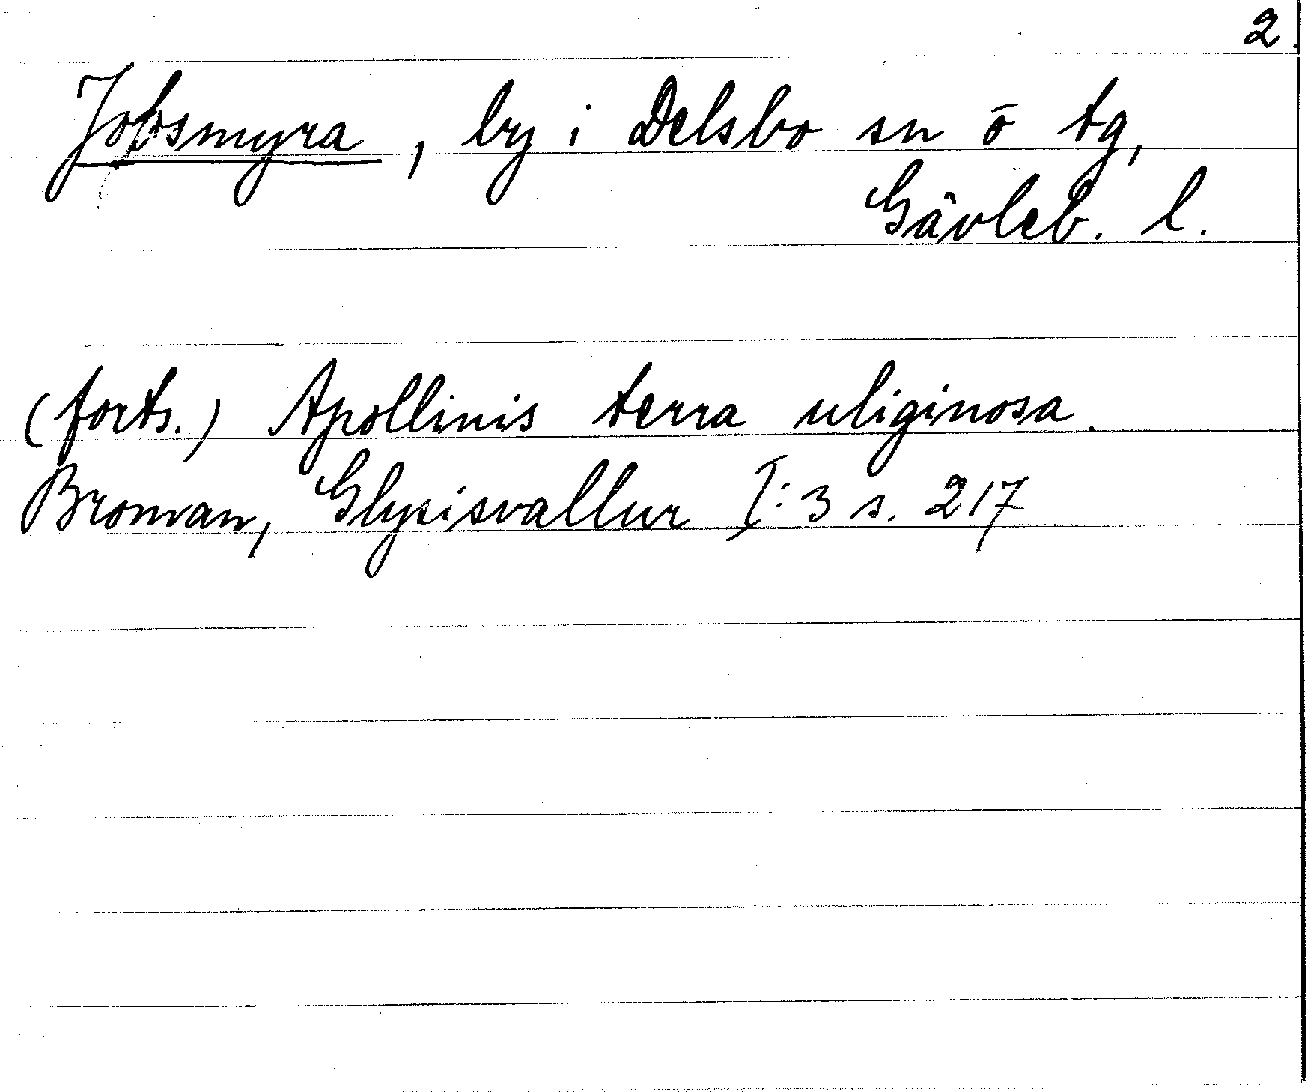 2.
Jobsmyra, by i Delsbo sn ö tg,
Gävleb. l.
(forts.) Apollinis terra uliginosa.
Broman, Glysisvallur I:3 s. 217